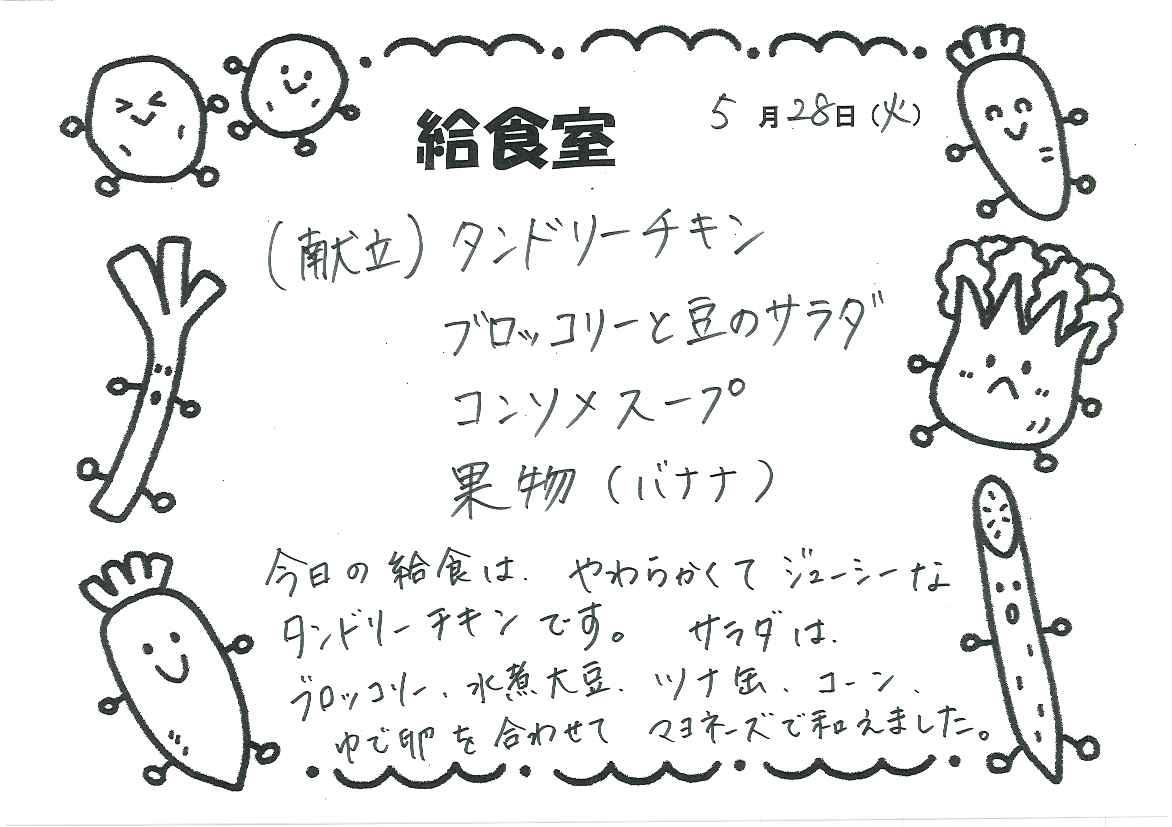 給食室
5月28日(火)
(献立)タンドリーチキン
ブロッコリーと豆のサラダ
コンソメスープ
果物(バナナ)
今日の給食は、やわらかくてジューシーな
タンドリーチキンです。サラダは、
ブロッコリー、水煮大豆、ツナ缶、コーン、
ゆで卵を合わせてマヨネーズで和えました。